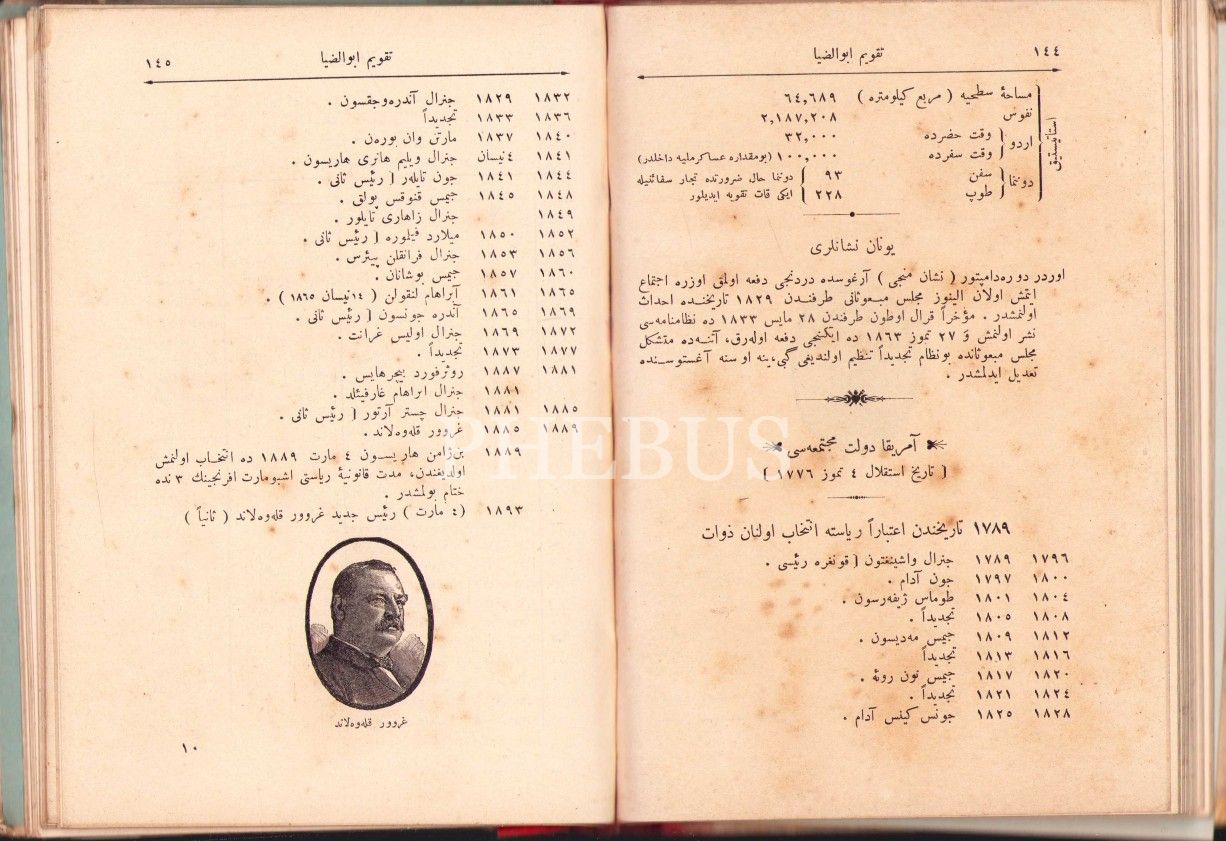 ١٤٤
تقويم ابوالضيا
استاتيستيق
مساحۀ سطحيه ( مربع كيلومتره ) ٦٤,٦٨٩
نفوس ٢,١٨٧,٢٠٨
اردو وقت حضرده ٣٢,٠٠٠
وقت سفرده ١٠٠,٠٠٠ (بومقداره عساكرمليه داخلدر)
دوننما سفن ٩٣ دوننما حال ضرورتده تجار سفائنيله
طوپ ٢٢٨ ايكى قات تقويه ايديلور
يونان نشانلرى
اوردر دو رەدامپتور ( نشان منجى ) آرغوسده دردنجى دفعه اولمق اوزره اجتماع
ايتمش اولان الينوز مجلس مبعوثانى طرفندن ١٨٢٩ تاريخنده احداث
اولنمشدر . مؤخراً قرال اوطون طرفندن ٢٨ مايس ١٨٣٣ ده نظامنامه‌سى
نشر اولنمش و ٢٧ تموز ١٨٦٣ ده ايكنجى دفعه اوله‌رق، آتنه‌ده متشكل
مجلس مبعوثانده بونظام تجديداً تنظيم اولنديغى گبى،ينه او سنه آغستوسنده
تعديل ايدلمشدر .
آمريقا دولت مجتمعه‌سى
[ تاريخ استقلال ٤ تموز ١٧٧٦ ]
١٧٨٩ تاريخندن اعتباراً رياسته انتخاب اولنان ذوات
١٧٩٦ ١٧٨٩ جنرال واشينغتون [ قونغره رئيسى .
١٨٠٠ ١٧٩٧ جون آدام .
١٨٠٤ ١٨٠١ طوماس ژيفه‌رسون .
١٨٠٨ ١٨٠٥ تجديداً .
١٨١٢ ١٨٠٩ جيمس مه‌ديسون .
١٨١٦ ١٨١٣ تجديداً
١٨٢٠ ١٨١٧ جيمس نون روئه .
١٨٢٤ ١٨٢١ تجديداً .
١٨٢٨ ١٨٢٥ جونس كينس آدام .
تقويم ابوالضيا
١٤٥
١٨٣٢ ١٨٢٩ جنرال آندره‌وجقسون .
١٨٣٦ ١٨٣٣ تجديداً
١٨٤٠ ١٨٣٧ مارتن وان بورەن .
١٨٤١ ٤نيسان جنرال ويليم هانرى هاريسون .
١٨٤٤ ١٨٤١ جون تايلەر [ رئيس ثانى .
١٨٤٨ ١٨٤٥ جيمس قنوقس پولق .
١٨٤٩ جنرال زاهارى تايلور .
١٨٥٢ ١٨٥٠ ميلارد فيلموره [ رئيس ثانى .
١٨٥٦ ١٨٥٣ جنرال فرانقلن پيئرس .
١٨٦٠ ١٨٥٧ جيمس بوشانان .
١٨٦٥ ١٨٦١ آبراهام لنقولن ( ١٤نيسان ١٨٦٥ ) .
١٨٦٩ ١٨٦٥ آندره جونسون [ رئيس ثانى .
١٨٧٢ ١٨٦٩ جنرال اوليس غرانت .
١٨٧٧ ١٨٧٣ تجديداً .
١٨٨١ ١٨٨٧ روثرفورد بيجرهايس .
١٨٨١ جنرال ابراهام غارفيئلد .
١٨٨٥ ١٨٨١ جنرال چستر آرتور [ رئيس ثانى .
١٨٨٩ ١٨٨٥ غروور قله‌وه‌لاند .
١٨٨٩ بن‌ژامن هاريسون ٤ مارت ١٨٨٩ ده انتخاب اولنمش
اولديغندن، مدت قانونيۀ رياستى اشبومارت افرنجينك ٣ نده
ختام بولمشدر .
١٨٩٣ (٤ مارت ) رئيس جديد غروور قله‌وه‌لاند ( ثانياً )
غروور قله‌وه‌لاند
١٠
PHEBUS